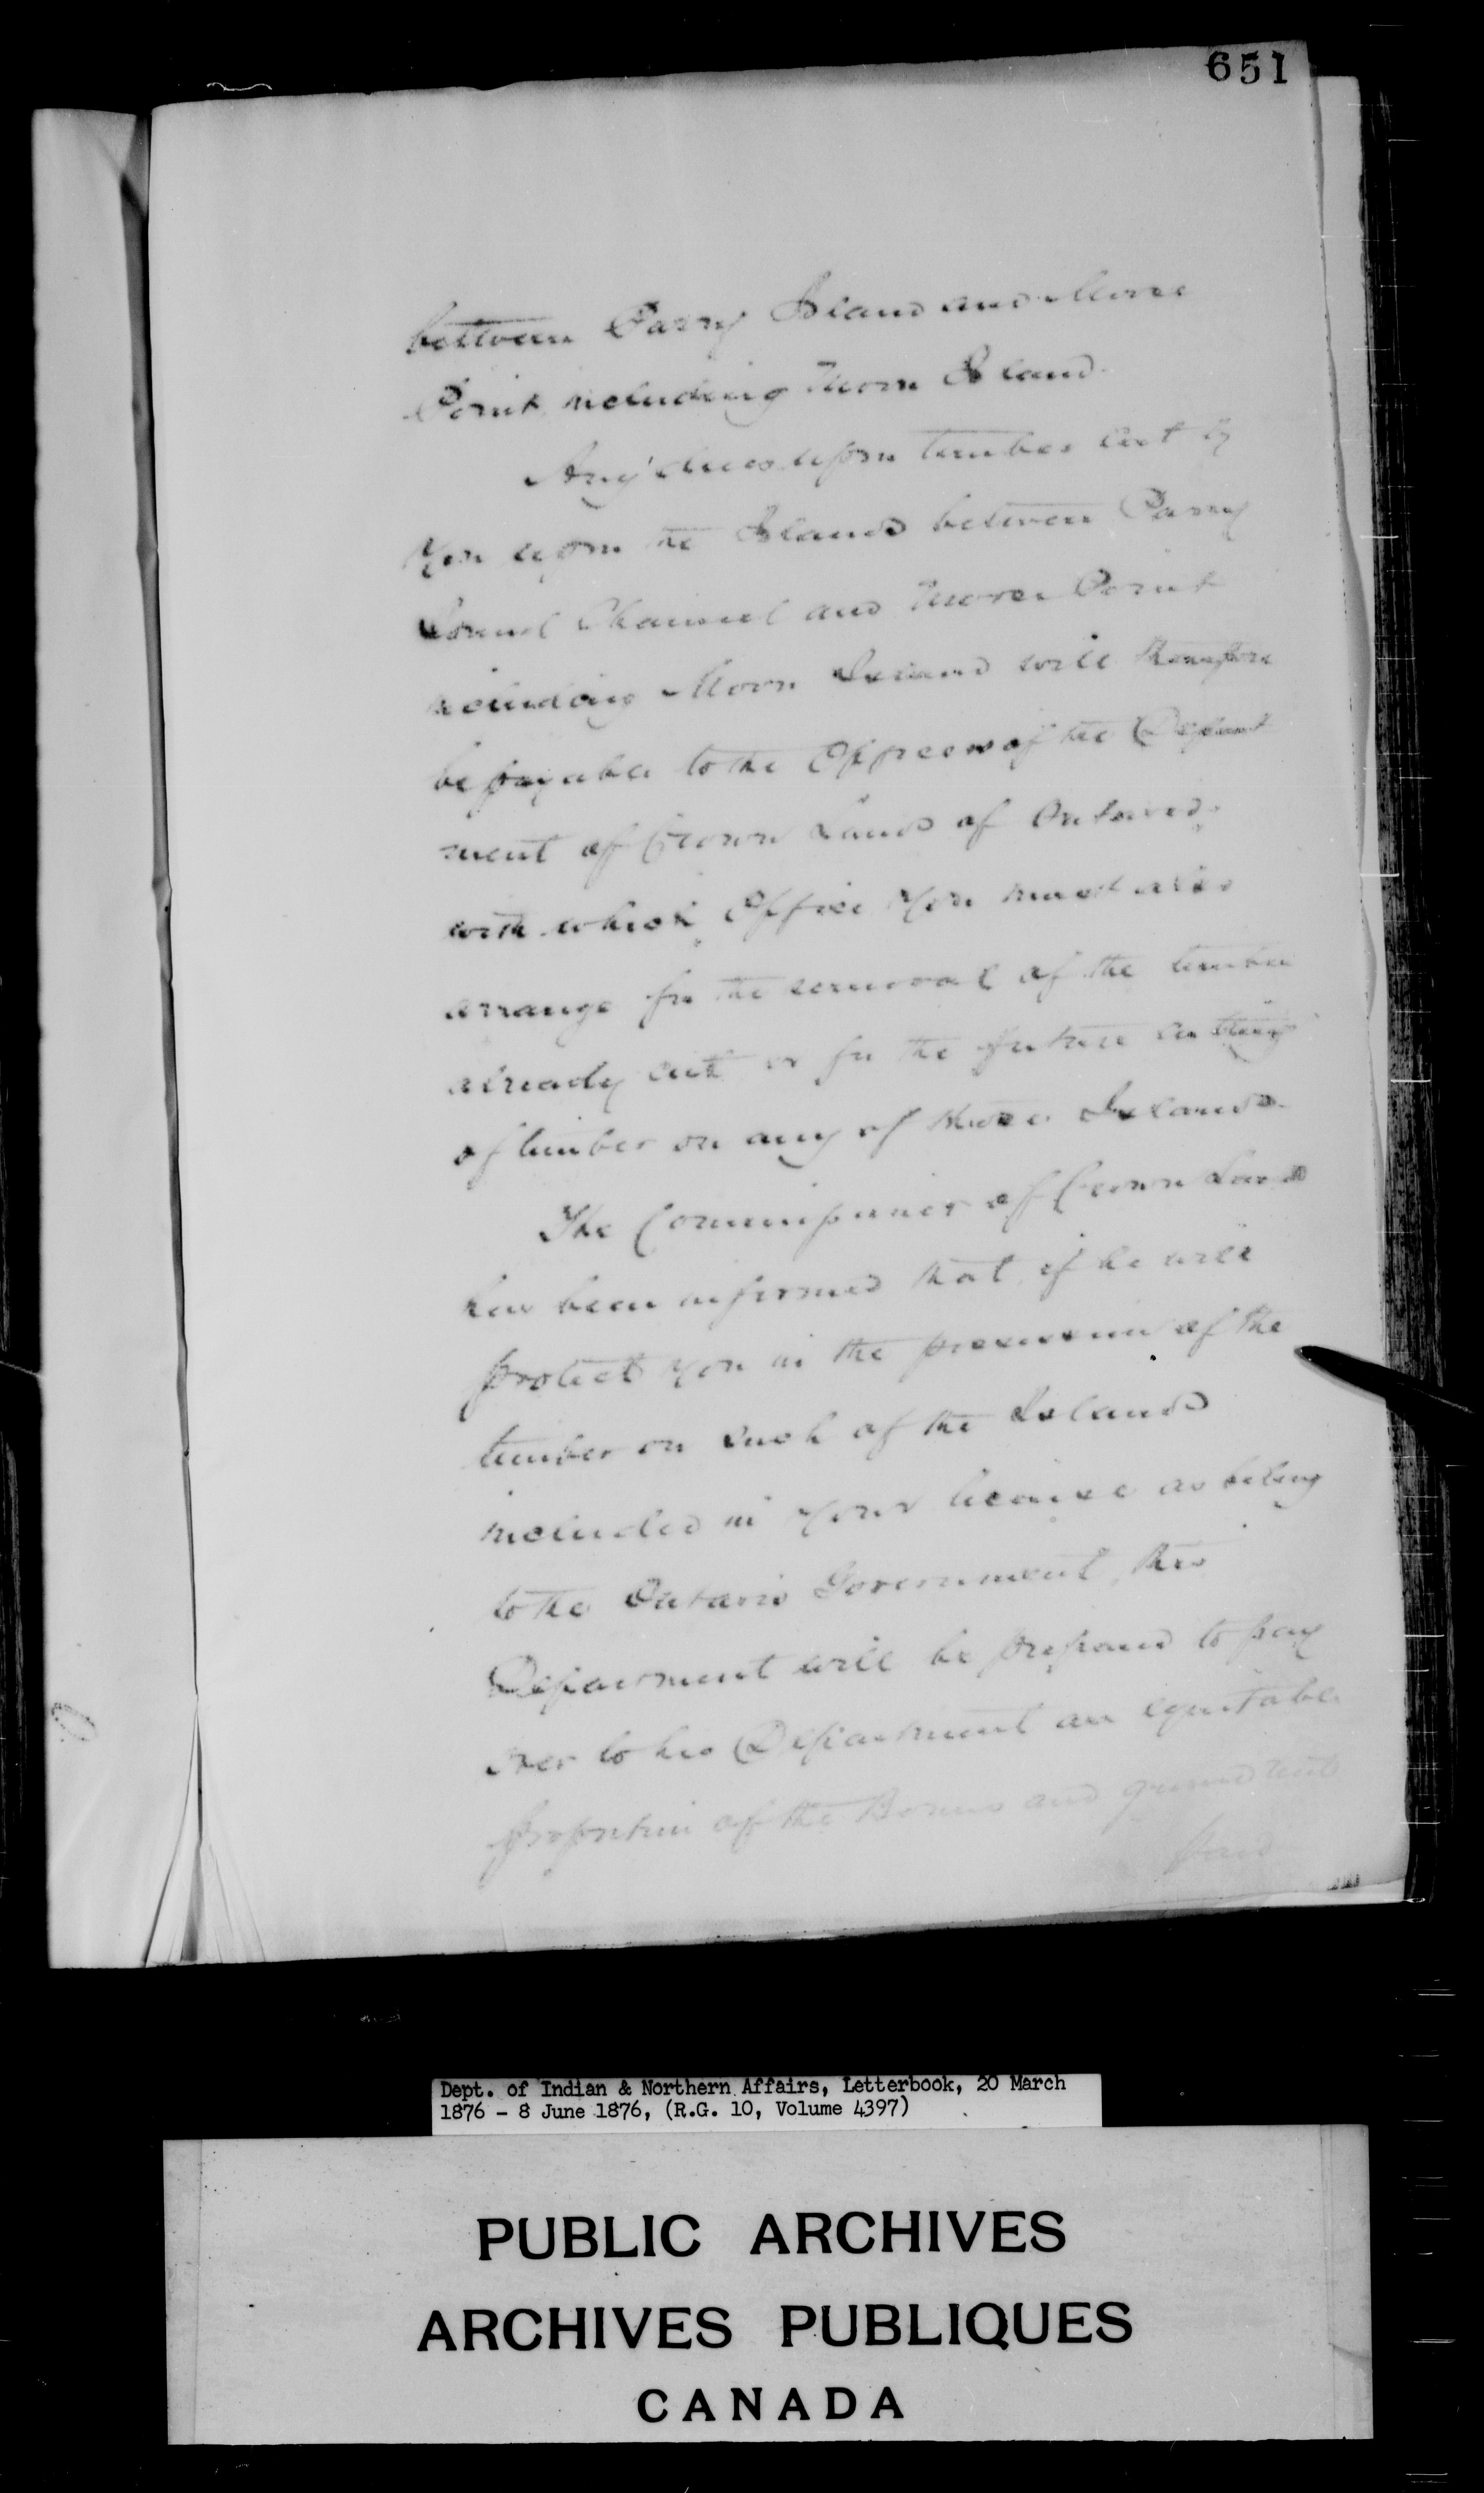 651
between Parry Island and Moose
Point including Moon Island.
Any dues upon timber cut by
you upon the Islands between Parry
Sound Channel and Moose Point
including Moon Island will therefore
be payable to the Officers of the Depart
ment of Crown Lands of Ontario,
with which Office you must also
arrange for the removal of the timber
already cut or for the future cutting
of timber on any of those Islands.
The Commissioner of Crown Lands
has been informed that if he will
protect you in the possession of the
timber on such of the Islands
included in your license as belong
to the Ontario Government, this
Department will be prepared to pay
over to his Department an equitable
proportion of the Bonus and ground rent
paid
Dept. of Indian & Northern Affairs, Letterbook, 20 March
1876 - 8 June 1876, (R.G. 10, Volume 4397)
PUBLIC ARCHIVES
ARCHIVES PUBLIQUES
CANADA